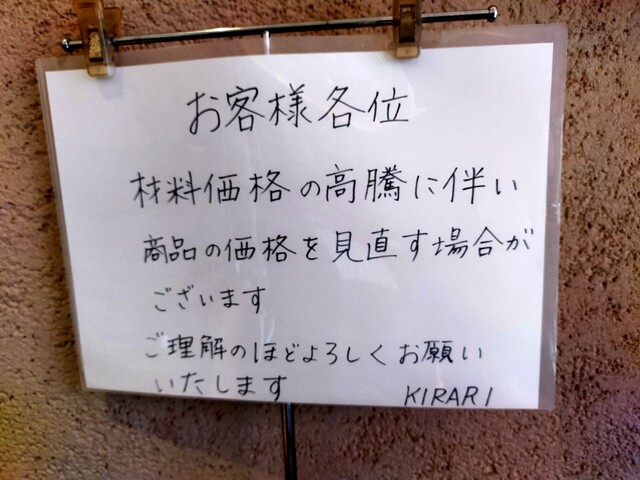 お客様各位
材料価格の高騰に伴い
商品の価格を見直す場合が
ございます
ご理解のほどよろしくお願い
いたします
KIRARI